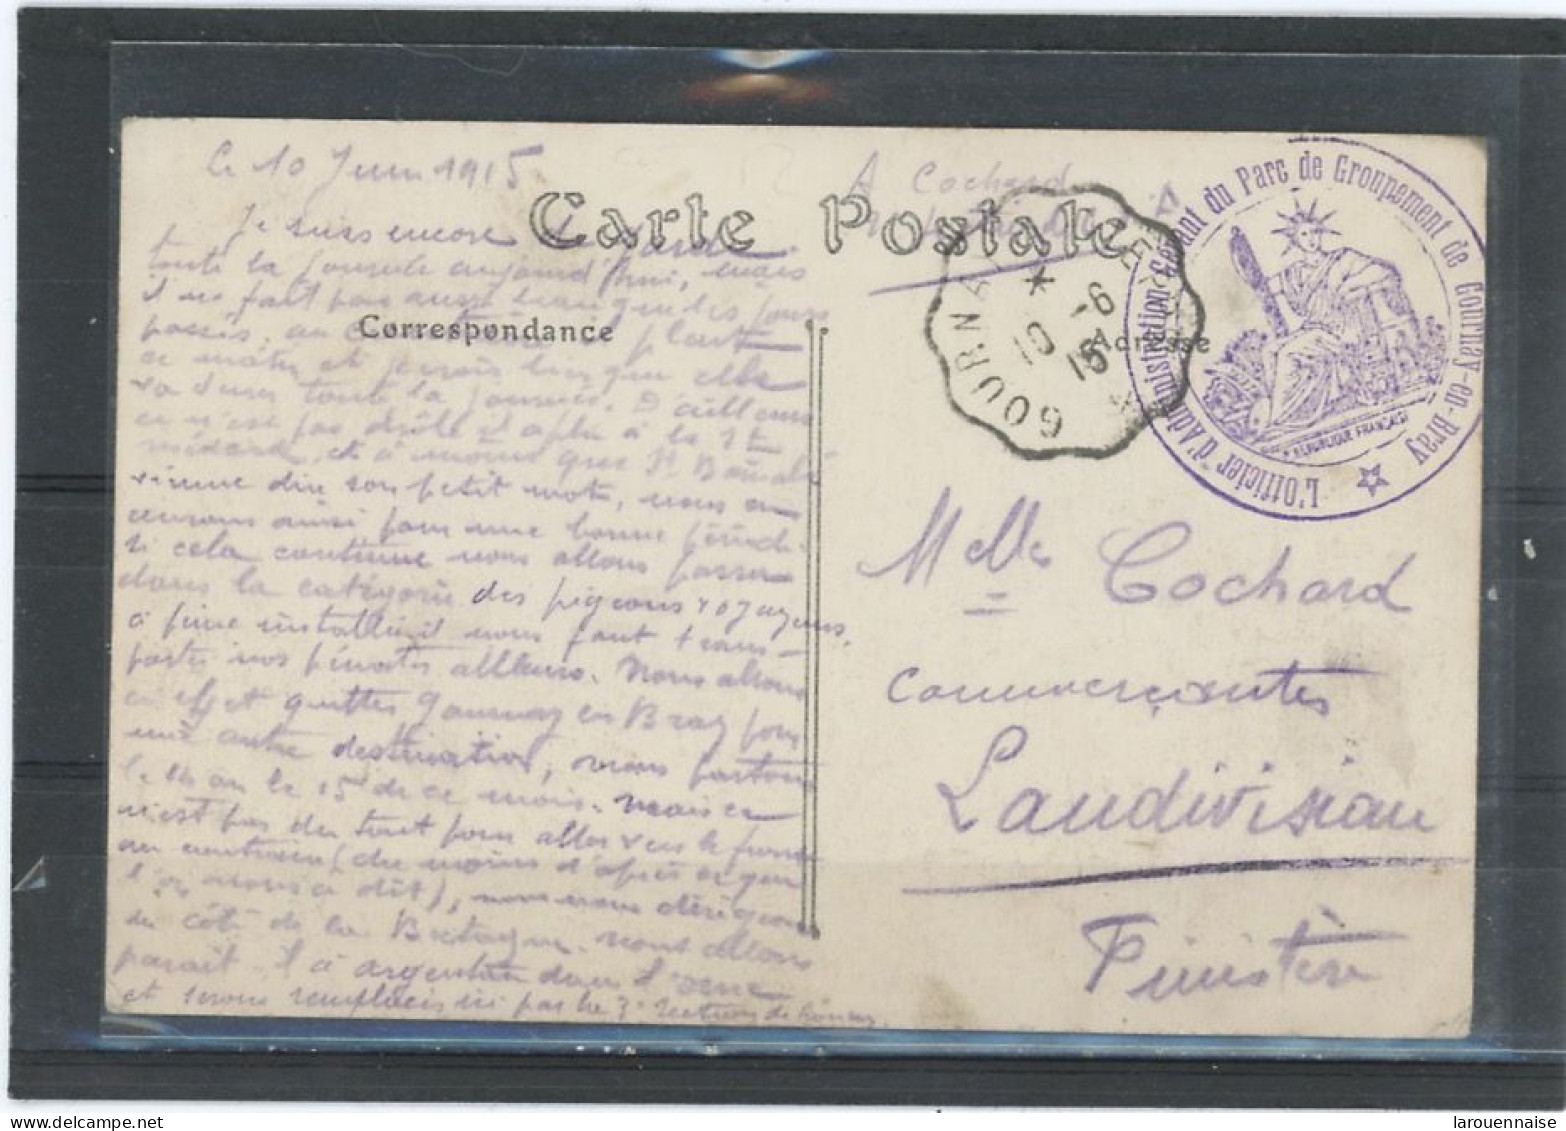 Le 10 Juin 1915
Je suis encore de garde
toute la journée aujourd'hui, mais
il ne fait pas aussi beau que les jours
passés, au contraire il pleut
ce matin et je crois bien que cela
va durer toute la journée. D'ailleurs
ce n'est pas drôle il a plu à la St
médard, et à moins que St Barnabé
vienne dire son petit mot, nous en
aurons ainsi pour une bonne période.
si cela continue nous allons passer
dans la catégorie des pigeons voyageurs.
à peine installés il nous faut trans-
porter nos pénates ailleurs. Nous allons
en effet quitter Gournay en Bray pour
une autre destination, nous partons
le 14 ou le 15 de ce mois. mais ce
n'est pas du tout pour aller vers le front
au contraire (du moins d'après ce que
l'on nous a dit), nous nous dirigeons
du côté de la Bretagne. nous allons
parait-il à argentan dans l'orne
et serons remplacés ici par la 3e section de
Carte Postale
Correspondance
Adresse
A Cochard
GOURNAY
10 -6
15
L'Officier d'Administration Gérant du Parc de Groupement de Gournay-en-Bray
REPUBLIQUE FRANCAISE
Melle Cochard
Commerçantes
Landivisiau
Finistère
larouennaise